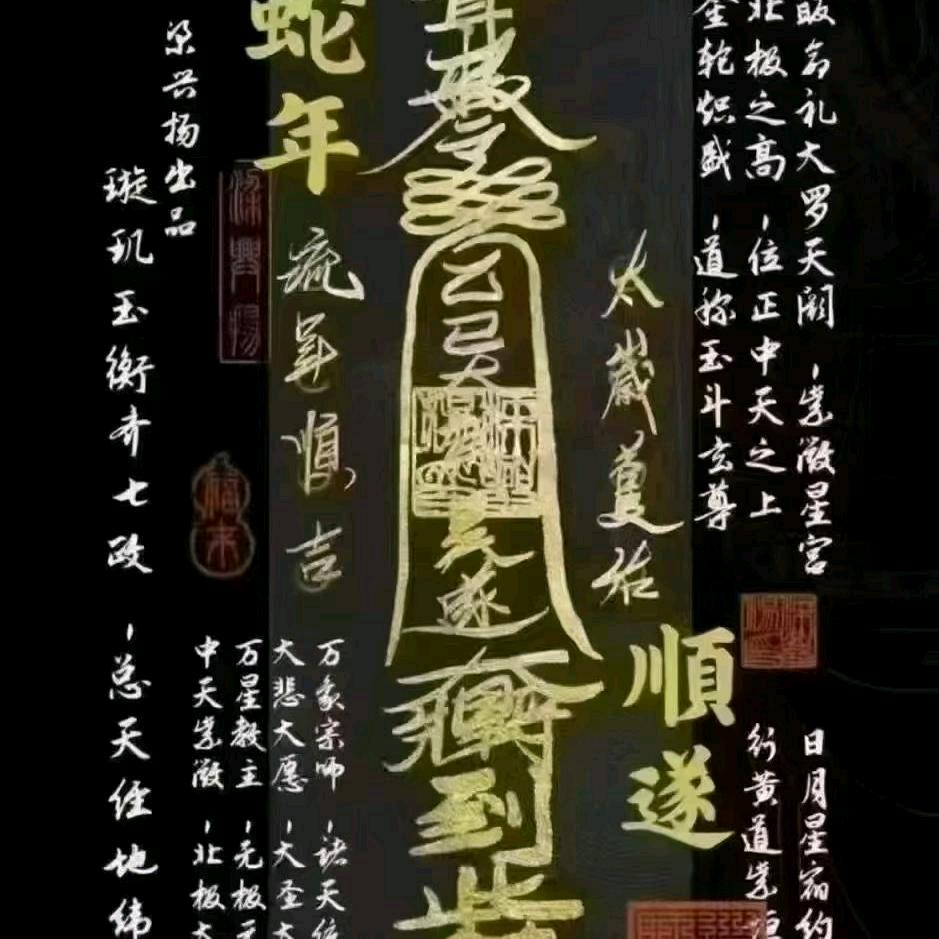 皈命礼大罗天阙，紫微星宫
北极之高，位正中天之上
金轮炽盛，道称玉斗玄尊
日月星宿约
行黄道紫垣
太歲 祐
順遂
乙巳太
兵遂
到此
蛇年
流年順吉
万象宗师，诸天统
大悲大愿，大圣大
万星教主，无极元
中天紫微，北极大
梁兴扬出品
梁興揚
璇玑玉衡齐七政，总天经地纬